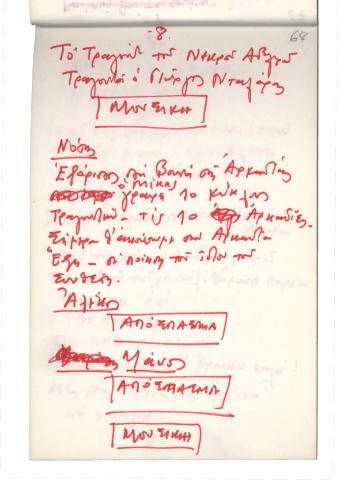 -8.
68
Τὸ Τραγούδι τοῦ Νεκροῦ Ἀδελφοῦ
Τραγουδᾶ ὁ Γιῶργος Νταλάρας
ΜΟΥΣΙΚΗ
Νότης
Ἐξόριστος στὴ Βοννὴ στῆς Ἀρκαδίας
ὁ Μίκης
γραφε 10 κύκλους
Τραγουδιῶν τὶς 10 Ἀρκαδίες.
Σήμερα θ' ἀκούσουμε στὴν Ἀρκαδία
Ἕξη - σὲ ποίηση τοῦ ἴδιου τοῦ
συνθέτη.
Ἀλέκος
ΑΠΟΣΠΑΣΜΑ
Μάνος
ΑΠΟΣΠΑΣΜΑ
ΜΟΥΣΙΚΗ